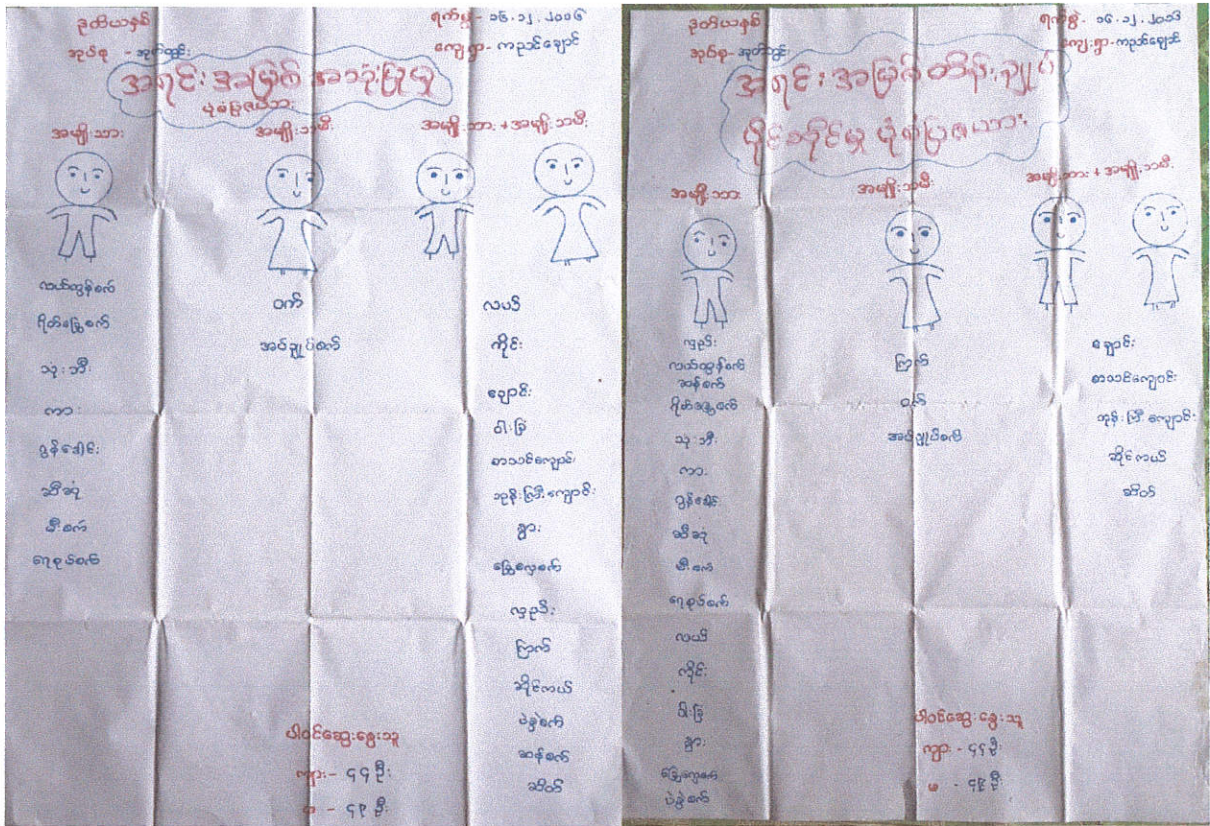 ဒုတိယနှစ်
ရက်စွဲ - ၁၆.၁၂.၂၀၁၆
အုပ်စု - အုတ်တွင်း
ကျေးရွာ - ကညင်ချောင်
အရင်းအမြစ် အသုံးပြုမှု
ပုံစံပြဇယား
အမျိုးသား
အမျိုးသမီး
အမျိုးသား + အမျိုးသမီး
လယ်ထွန်စက်
ရိတ်ခြွေစက်
သုံးဘီး
ကား
ဂွန်ဒေါင်း
ဆီဆုံ
မီးစက်
ရေစုပ်စက်
ဝက်
အပ်ချုပ်စက်
လယ်
ကိုင်း
ချောင်း
ဝါးခြံ
စာသင်ကျောင်း
ဘုန်းကြီးကျောင်း
နွား
ခြွေလှေ့စက်
လှည်း
ကြက်
ဆိုင်ကယ်
ပဲခွဲစက်
ဆန်စက်
ဆိတ်
ပါဝင်ဆွေးနွေးသူ
ကျား - ၄၄ ဦး
မ - ၄၉ ဦး
ဒုတိယနှစ်
ရက်စွဲ - ၁၆.၁၂.၂၀၁၆
အုပ်စု - အုတ်တွင်း
ကျေးရွာ - ကညင်ချောင်
အရင်းအမြစ် ထိန်းချုပ်
ပိုင်ဆိုင်မှု ပုံစံပြဇယား
အမျိုးသား
အမျိုးသမီး
အမျိုးသား + အမျိုးသမီး
လှည်း
လယ်ထွန်စက်
ဆန်စက်
ရိတ်ခြွေစက်
သုံးဘီး
ကား
ဂွန်ဒေါင်း
ဆီဆုံ
မီးစက်
ရေစုပ်စက်
လယ်
ကိုင်း
ဝါးခြံ
နွား
ခြွေလှေ့စက်
ပဲခွဲစက်
ကြက်
ဝက်
အပ်ချုပ်စက်
ချောင်း
စာသင်ကျောင်း
ဘုန်းကြီးကျောင်း
ဆိုင်ကယ်
ဆိတ်
ပါဝင်ဆွေးနွေးသူ
ကျား - ၄၄ ဦး
မ - ၄၉ ဦး